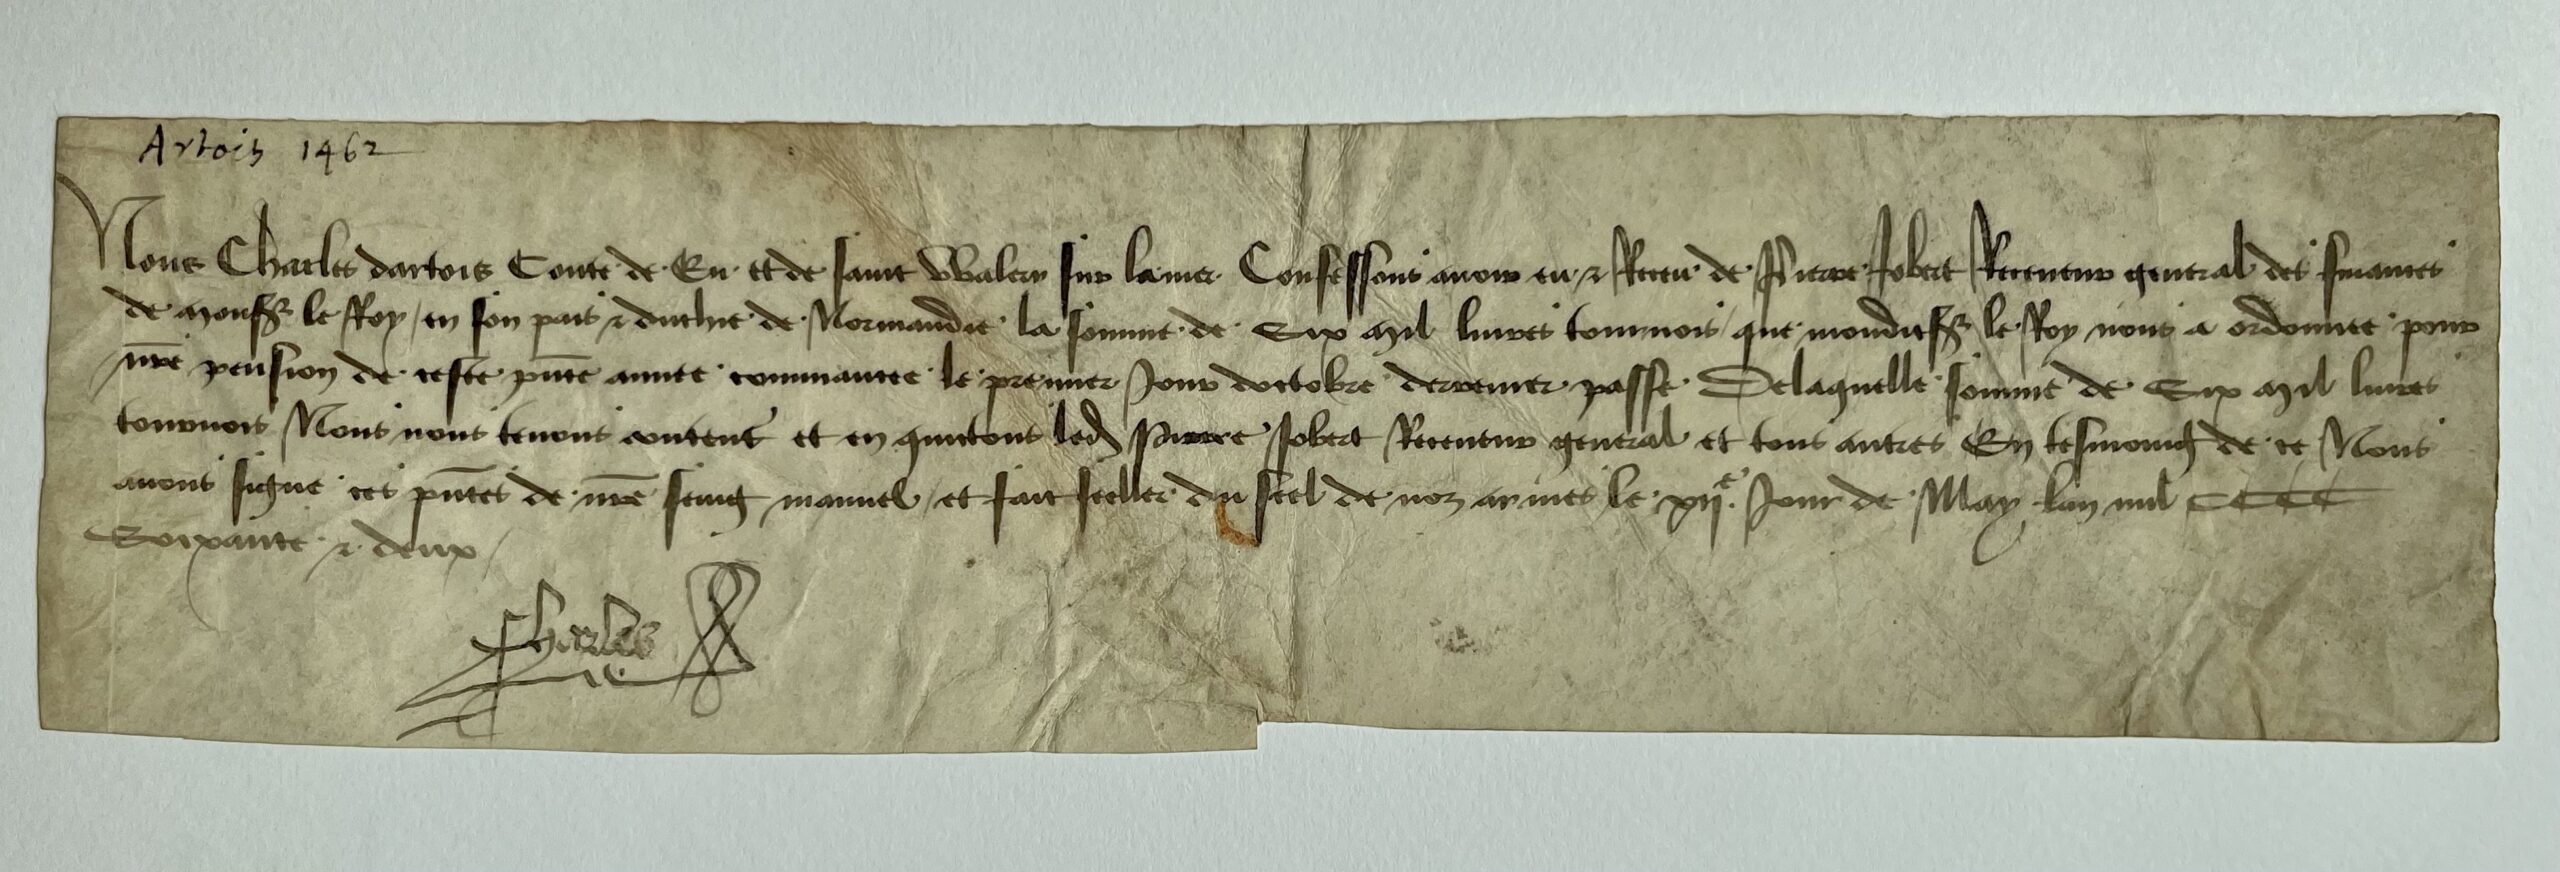 Artois 1462
Nous Charles dartois Conte de Eu et de saint Walery sur la mer Confessons avoir eu & Receu de Pierre Jobert Receveur general des finances
de monsr le Roy en son pais & duchie de Normandie la somme de Six mil livres tournois que mondit sr le Roy nous a ordonnee pour
nre pension de ceste pnte annee commancee le premier Jour doctobre derrenier passe De laquelle somme de Six mil livres
tournois Nous nous tenons content et en quictons led Pierre Jobert Receveur general et tous autres En tesmoing de ce Nous
avons signe ces pntes de nre seing manuel et fait seeller du seel de noz armes le xije Jour de May lan mil CCCC
Soixante & deux
Charles